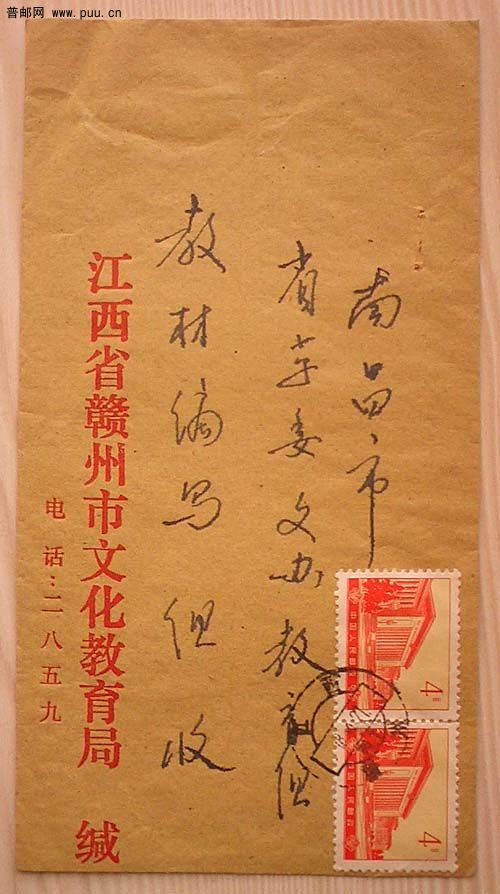 普邮网 www.puu.cn
南昌市
省革委文办教育组
教材编写组收
江西省赣州市文化教育局 缄
电话:二八五九
中国人民邮政
4分
中国人民邮政
4分